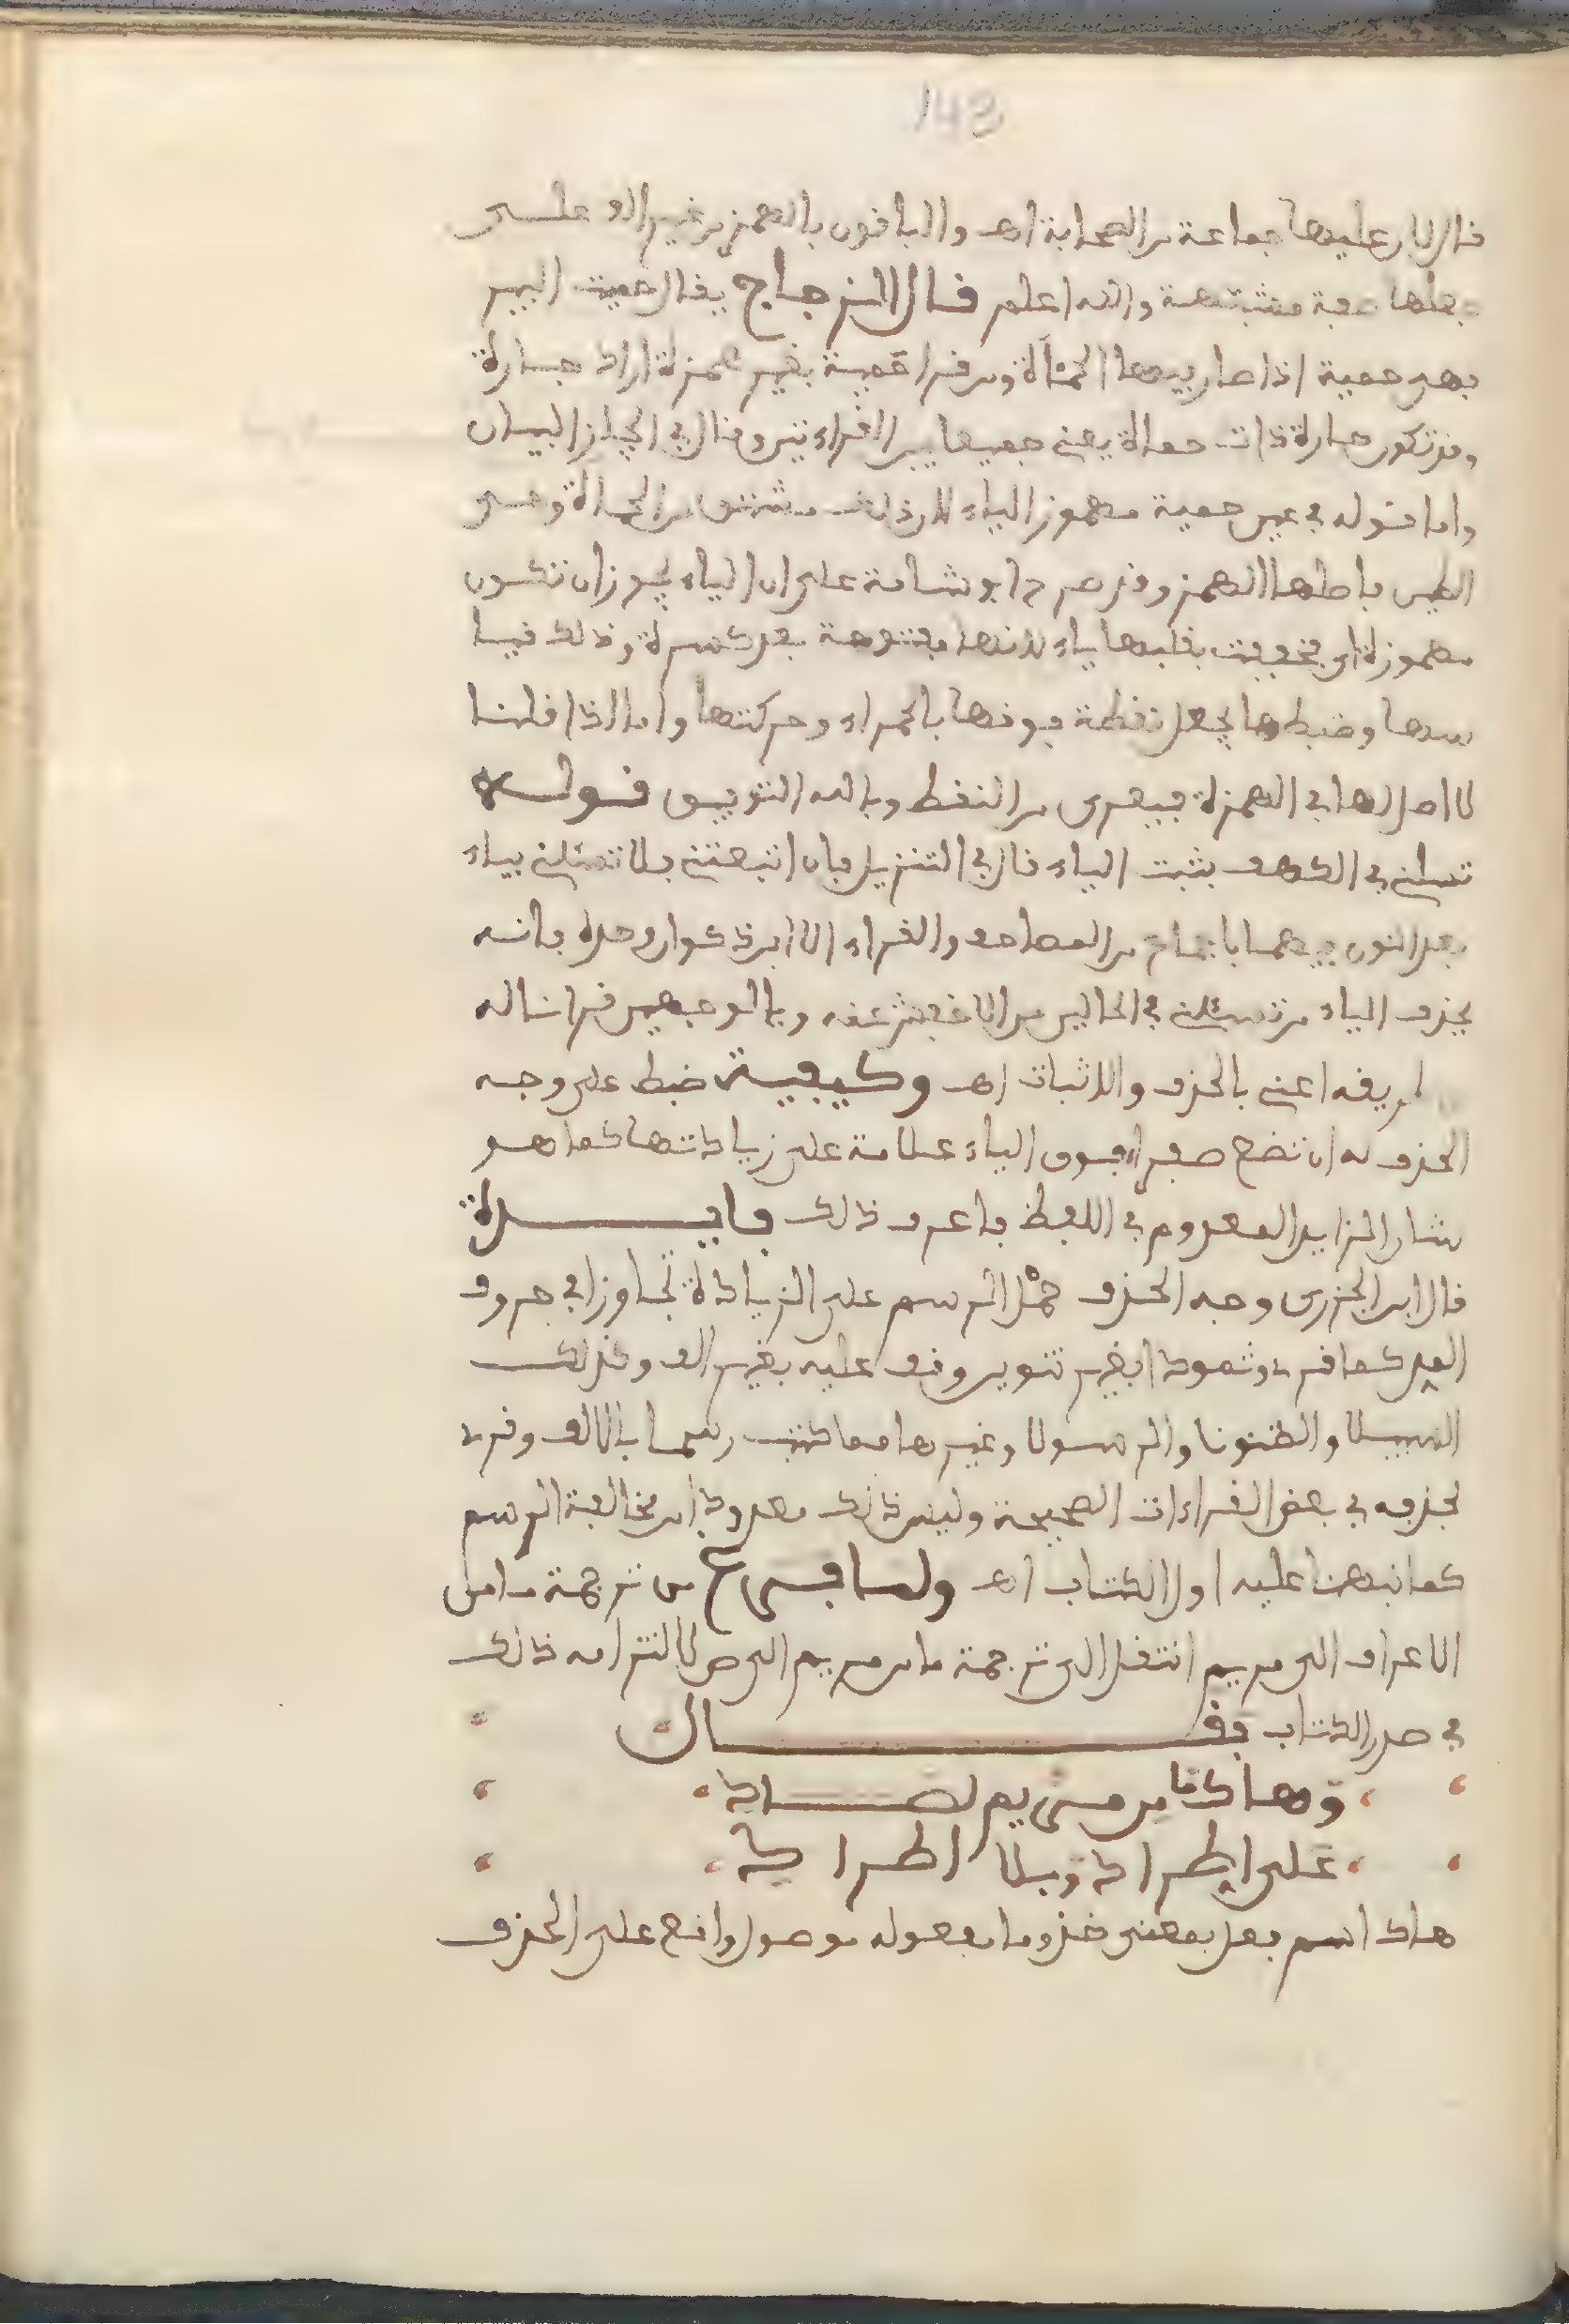 143
قال لان عليها جماعة من الصحابة اهـ والباقون بالهمز من غير الف على
جعلها صفة مشبهة والله اعلم قال الزجاج يقال حميت البير
فهي حمية اذا صار فيها الحمأة ومن قرا حمية بغير همزة اراد حارة
وقد تكون حارة ذات حماة يعني جمعا بين القراءتين وقال في الجلاز البيان
واما قوله في عين حمية مهموز الياء لان ذلك مشتق من الحماة وهي
الطين فاصلها الهمز وقد صرح ابو شامة على ان الياء يجوز ان تكون
مهموزة اي خففت بقلبها ياء لانها مفتوحة بعد كسرة وذلك قياسا
سدها وضبطها بجعل نقطة فوقها بالحمراء وحركتها واما اذا قلنا
لا اصل لها في الهمزة فيعرى من النقط وبالله التوفيق قوله
تسلني في الكهف بثبت الياء قال في التنزيل فان اتبعتني فلا تسئلني بياء
بعد النون فيهما باجماع من المصاحف والقراء الا ابن ذكوان وحده فانه
بحذف الياء من تسئلني في الحالين من الاخفش عنه وبالوجهين قرانا له
من طريقه اعني بالحذف والاثبات اهـ وكيفية ضبط على وجه
الحذف له ان تضع صفرا فوق الياء علامة على زيادتها كما هو
شان الزايد المعدوم في اللفظ فاعرف ذلك فايدة
قال ابن الجزري وجه الحذف حمل الرسم على الزيادة تجاوزا في حروف
المد كما قرء وثمودا بغير تنوين ووقف عليه بغير الف وكذلك
السبيلا والظنونا والرسولا وغيرها مما كتب رسما بالالف وقرء
بحذفه في بعض القراءات الصحيحة وليس ذلك معدودا من مخالفة الرسم
كما نبهنا عليه اول الكتاب اهـ ولما فرغ من ترجمة ما من
الاعراف الى مريم انتقل الى ترجمة ما من مريم الى ص لالتزامه ذلك
في صدر الكتاب فقال
وهاك ما من مريم لصاد
على اطراد وبلا اطراد
هاك اسم فعل بمعنى خذ وما مفعوله موصول واقع على الحذف